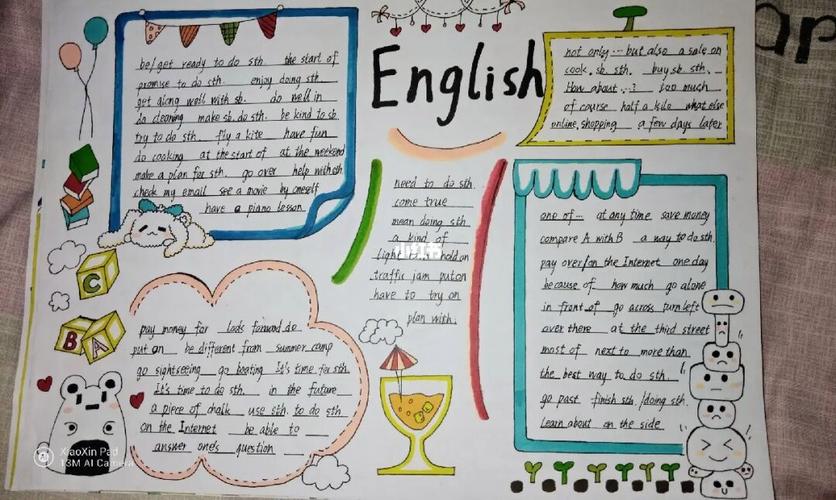 English
be/get ready to do sth. the start of
promise to do sth. enjoy doing sth.
get along well with sb. do well in
do cleaning make sb. do sth. be kind to sb
try to do sth. fly a kite have fun
do cooking at the start of at the weekend
make a plan for sth. go over help with sth
check my email see a movie by oneself
have a piano lesson
not only ... but also a sale on
cook sb. sth. buy sb sth.
How about ...? too much
of course half a kilo what else
online shopping a few days later
need to do sth.
come true
mean doing sth
a kind of
light hold on
traffic jam put on
have to try on
plan with.
one of ... at any time save money
compare A with B a way to do sth.
pay over/on the Internet one day
because of how much go alone
in front of go across turn left
over there at the third street
most of next to more than
the best way to do sth.
go past finish sth./doing sth.
learn about on the side
pay money for look forward to
put on be different from summer camp
go sightseeing go boating It's time for sth
It's time to do sth. in the future
a piece of chalk use sth. to do sth
on the Internet be able to
answer one's question
C
B A
XiaoXin Pad
13M AI Camera